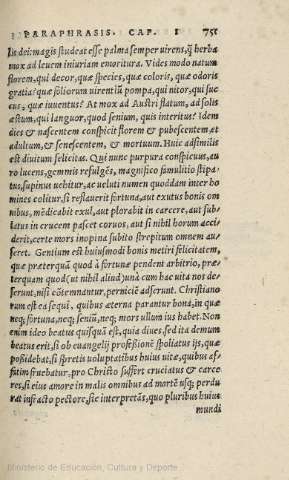 PARAPHRASIS. CAP. I 751
lis dei: magis studeat esse palma semper uirens, q̃ herba
mox ad leuem iniuriam emoritura. Vides modo natum
florem, qui decor, quæ species, quæ coloris, quæ odoris
gratia? quæ foliorum uirentiũ pompa, qui nitor, qui suc
cus, quæ iuuentus? At mox ad Austri flatum, ad solis
æstum, qui languor, quod senium, quis interitus? Idem
dies & nascentem conspicit florem & pubescentem et
adultum, & senescentem, & mortuum. Huic adsimilis
est diuitum felicitas. Qui nunc purpura conspicuus, au
ro lucens, gemmis refulgẽs, magnifico famulitio stipa-
tus, supinus uehitur, ac ueluti numen quoddam inter ho
mines colitur, si reflauerit fortuna, aut exutus bonis om
nibus, mẽdicabit exul, aut plorabit in carcere, aut sub-
latus in crucem pascet coruos, aut si nihil horum acci-
derit, certe mors inopina subito strepitum omnem au-
feret. Gentium est huiusmodi bonis metiri felicitatem,
quæ præterquã quod à fortunæ pendent arbitrio, præ-
terquam quod (ut nihil aliud) unà cum hac uita nos de-
serunt, nisi cõtemnantur, perniciẽ adserunt. Christiano
rum est ea sequi, quibus æterna parantur bona, in quæ
neq; fortuna, neq; seniũ, neq; mors ullum ius habet. Non
enim ideo beatus quisquã est, quia diues, sed ita demum
beatus erit, si ob euangelij professionẽ spoliatus ijs, quæ
possidebat, si spretis uoluptatibus huius uitæ, quibus af-
fatim fruebatur, pro Christo suffert cruciatus & carce
res, si eius amore in malis omnibus ad mortẽ usq; perdu
rat infracto pectore, sic interpretãs, quo pluribus huius
mundi
Ministerio de Educación, Cultura y Deporte